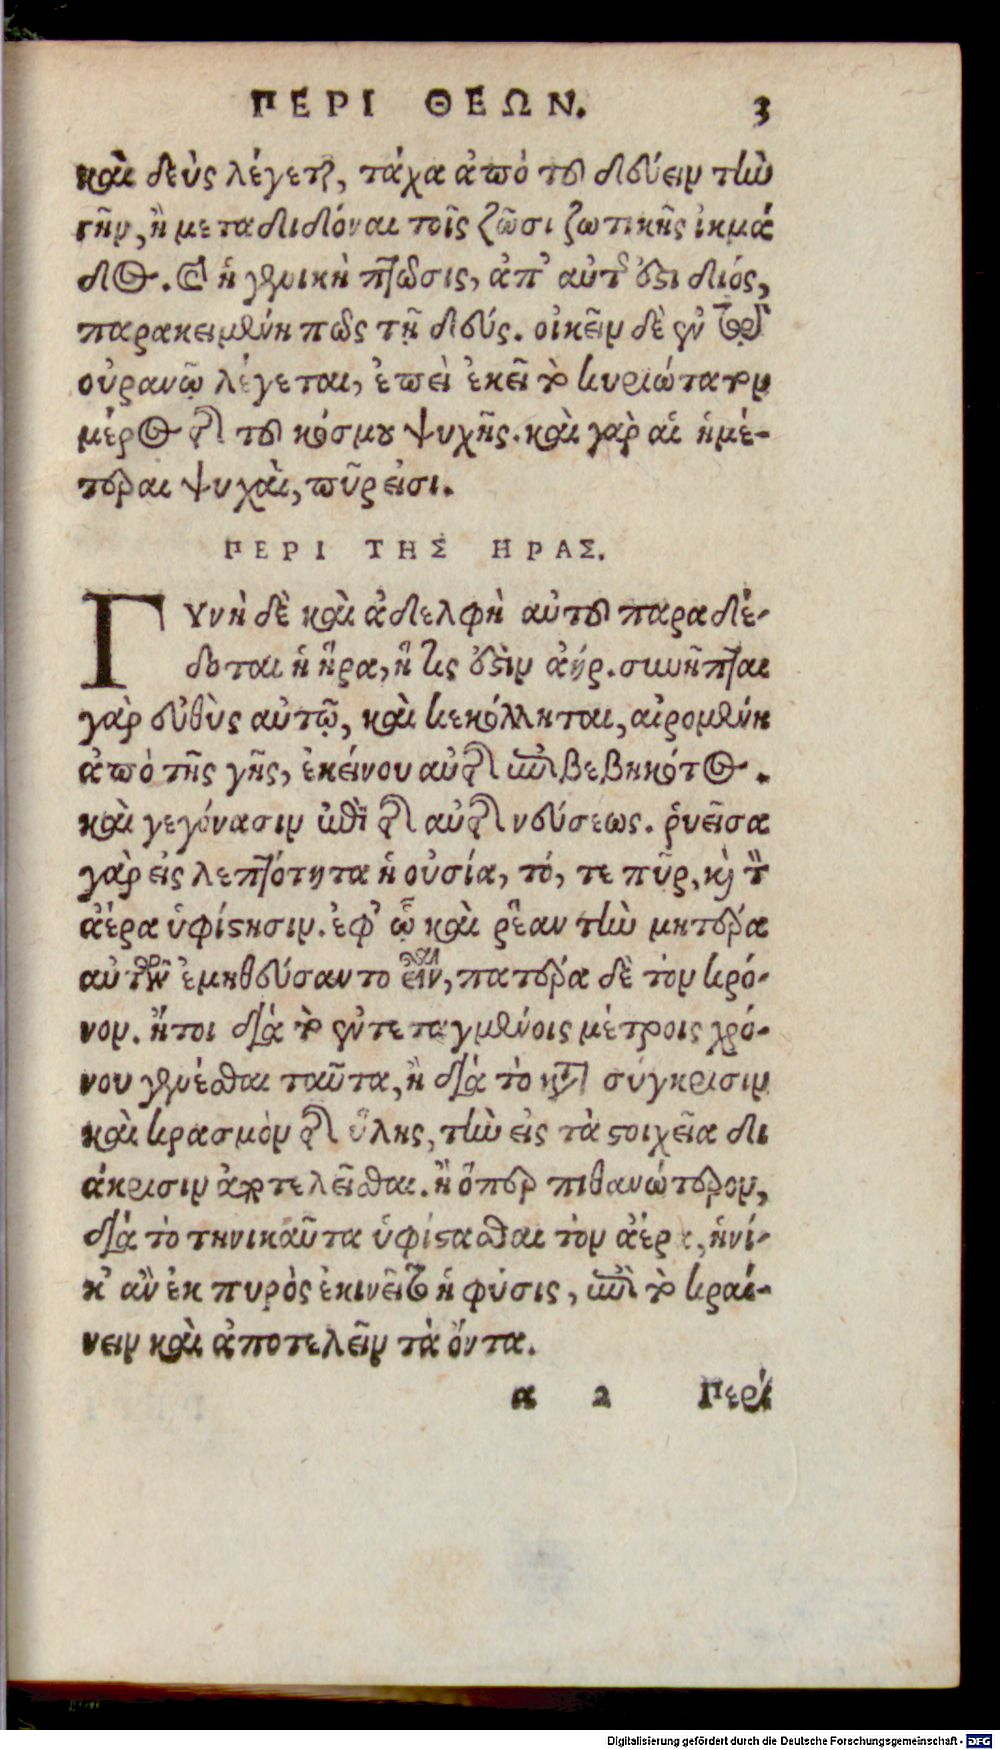 ΠΕΡΙ ΘΕΩΝ. 3
καὶ δεὺς λέγεται, τάχα ἀπὸ τοῦ δεύειν τὴν
γῆν, ἢ μεταδιδόναι τοῖς ζῶσι ζωτικῆς ἰκμά
δος. καὶ ἡ γενικὴ πτῶσις, ἀπ' αὐτοῦ ἐστι διός,
παρακειμένη πως τῇ δεύς. οἰκεῖν δὲ ἐν τῷ
οὐρανῷ λέγεται, ἐπεὶ ἐκεῖ τὸ κυριώτατον
μέρος τῆς τοῦ κόσμου ψυχῆς. καὶ γὰρ αἱ ἡμέ-
τεραι ψυχαὶ, πῦρ εἰσι.
ΠΕΡΙ ΤΗΣ ΗΡΑΣ.
Γυνὴ δὲ καὶ ἀδελφὴ αὐτοῦ παραδέ-
δοται ἡ ἥρα, ἥ τις ἐστὶν ἀήρ. συνῆπται
γὰρ εὐθὺς αὐτῷ, καὶ κεκόλληται, αἰρομένη
ἀπὸ τῆς γῆς, ἐκείνου αὐτῆς ἐπιβεβηκότος.
καὶ γεγόνασιν ἀπὸ τῆς αὐτῆς νεύσεως. ῥυεῖσα
γὰρ εἰς λεπτότητα ἡ οὐσία, τό, τε πῦρ, καὶ τὸν
ἀέρα ὑφίστησιν. ἐφ' ᾧ καὶ ῥέαν τὴν μητέρα
αὐτῶν ἐμηθεύσαντο εἶναι, πατέρα δὲ τὸν κρό-
νον. ἤτοι διὰ τὸ ἐν τεταγμένοις μέτροις χρό-
νου γενέσθαι ταῦτα, ἢ διὰ τὸ κατὰ σύγκρισιν
καὶ κρασμὸν τῆς ὕλης, τὴν εἰς τὰ στοιχεῖα δι
άκρισιν ἀποτελεῖσθαι. ἢ ὅπερ πιθανώτερον,
διὰ τὸ τηνικαῦτα ὑφίστασθαι τὸν ἀέρα, ἡνί-
κ' ἂν ἐκ πυρὸς ἐκινεῖτο ἡ φύσις, ἐπὶ τὸ κραί-
νειν καὶ ἀποτελεῖν τὰ ὄντα.
α 2 Περὶ
Digitalisierung gefördert durch die Deutsche Forschungsgemeinschaft - DFG